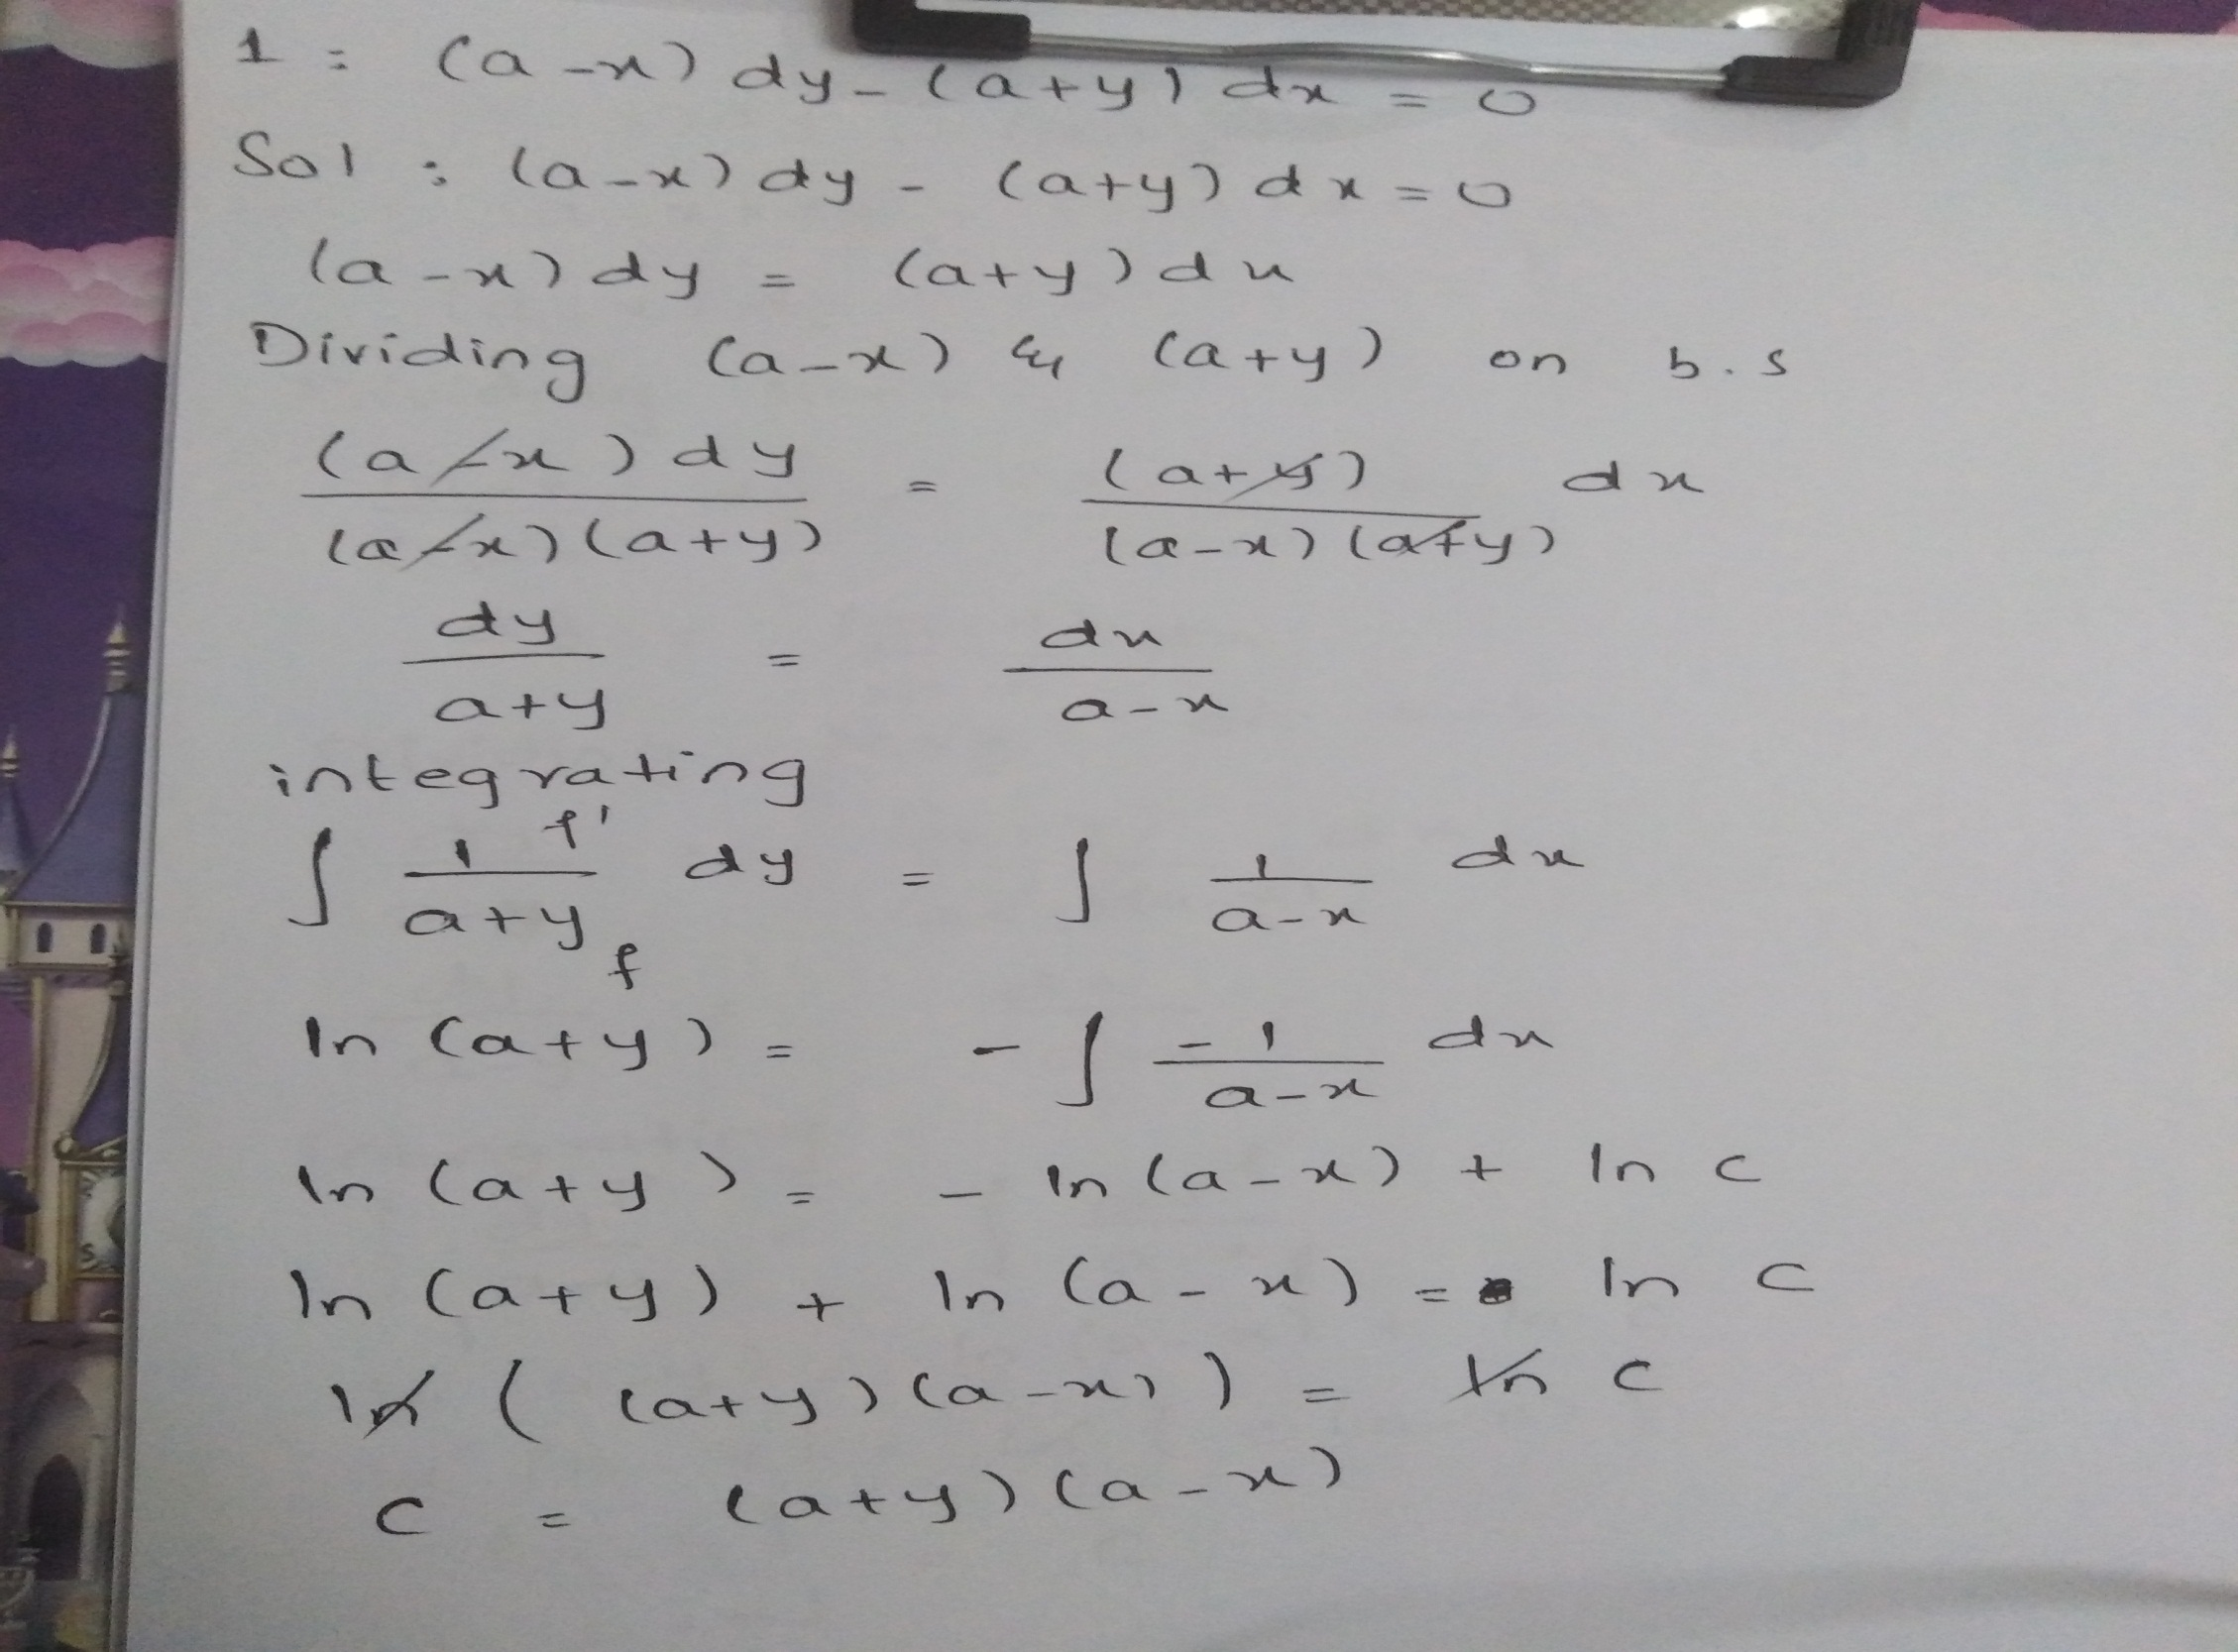 1 : (a-x) dy - (a+y) dx = 0
Sol : (a-x) dy - (a+y) dx = 0
(a-x) dy = (a+y) dx
Dividing (a-x) & (a+y) on b.s
(a-x) dy / (a-x)(a+y) = (a+y) / (a-x)(a+y) dx
dy / a+y = dx / a-x
integrating
∫ 1 f' / a+y f dy = ∫ 1 / a-x dx
ln (a+y) = - ∫ -1 / a-x dx
ln (a+y) = - ln (a-x) + ln c
ln (a+y) + ln (a-x) = ln c
ln ( (a+y)(a-x) ) = ln c
c = (a+y)(a-x)